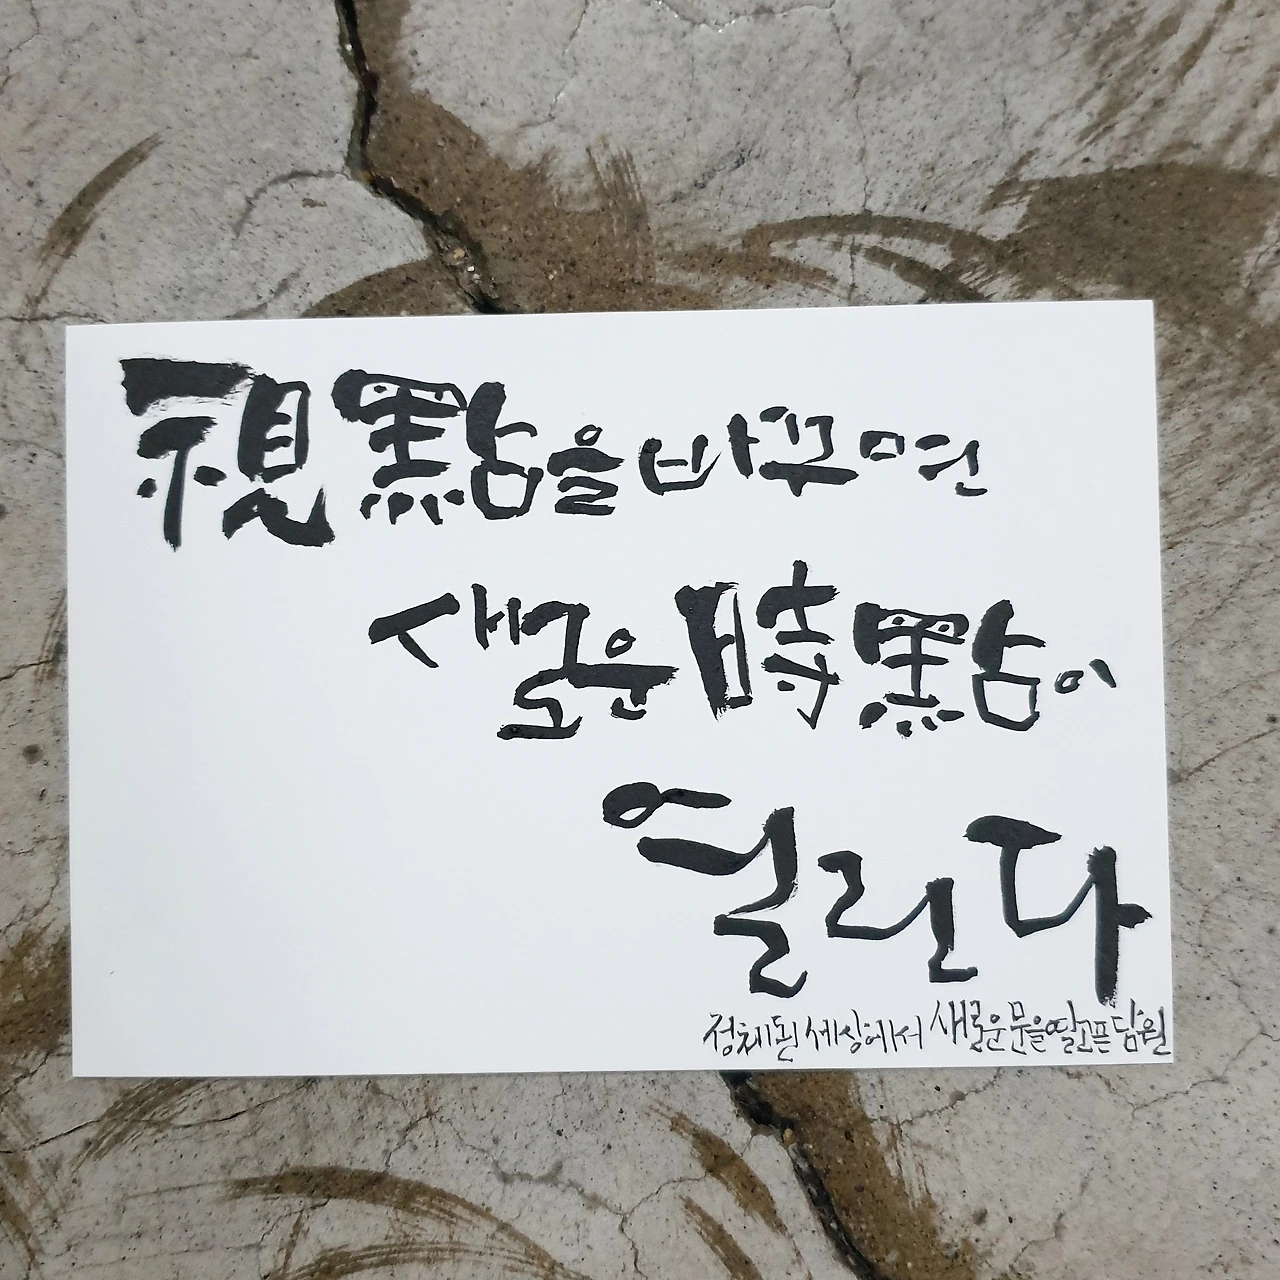 視點을 바꾸면
새로운 時點이
열린다
정체된 세상에서 새로운 문을 열고픈 담원